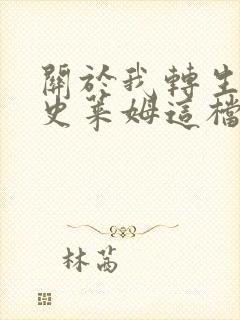 關於我轉生
史萊姆這檔
林茜